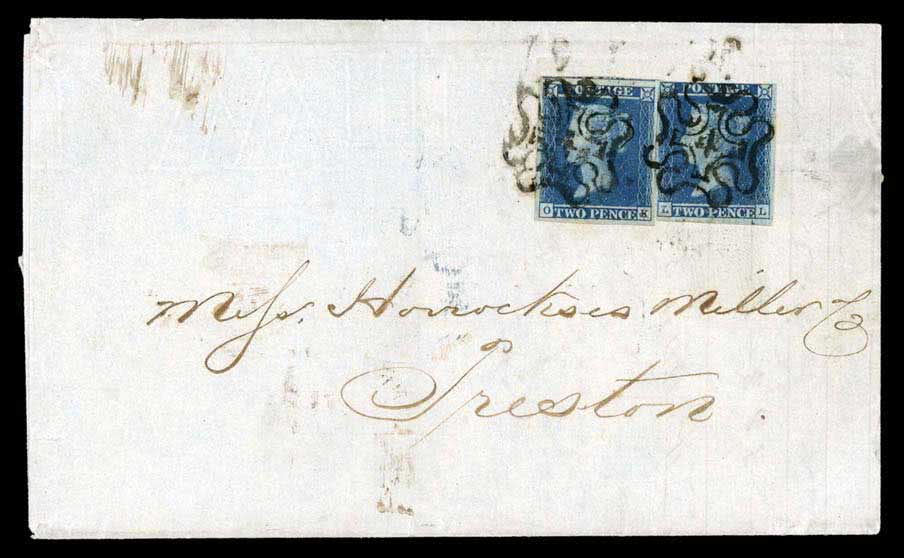 POSTAGE POSTAGE
O TWO PENCE K L TWO PENCE L
Messrs. Horrockses Miller Co
Preston.